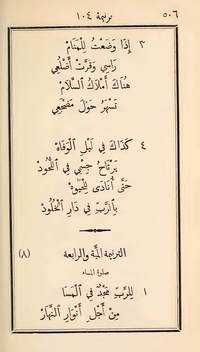 ٥٠٦ ترنيمة ١٠٤
٣ إِذَا وَضَعْتُ لِلْمَنَامْ
رَاسِي وَقَرَّتْ أَضْلُعِي
هُنَاكَ أَمْلَاكُ ٱلسَّلَامْ
تَسْهَرُ حَوْلَ مَضْجَعِي
٤ كَذَاكَ فِي لَيْلِ ٱلْوَفَاهْ
يَرْتَاحُ جِسْمِي فِي ٱللُّحُودْ
حَتَّى أُنَادَى لِلْحَيٰوةْ
بِٱلرَّبِّ فِي دَارِ ٱلْخُلُودْ
الترنيمة المِئَة والرابعة (٨)
صلوة المساء
١ لِلرَّبِّ مَجْدٌ فِي ٱلْمَسَا
مِنْ أَجْلِ أَنْوَارِ ٱلنَّهَارْ